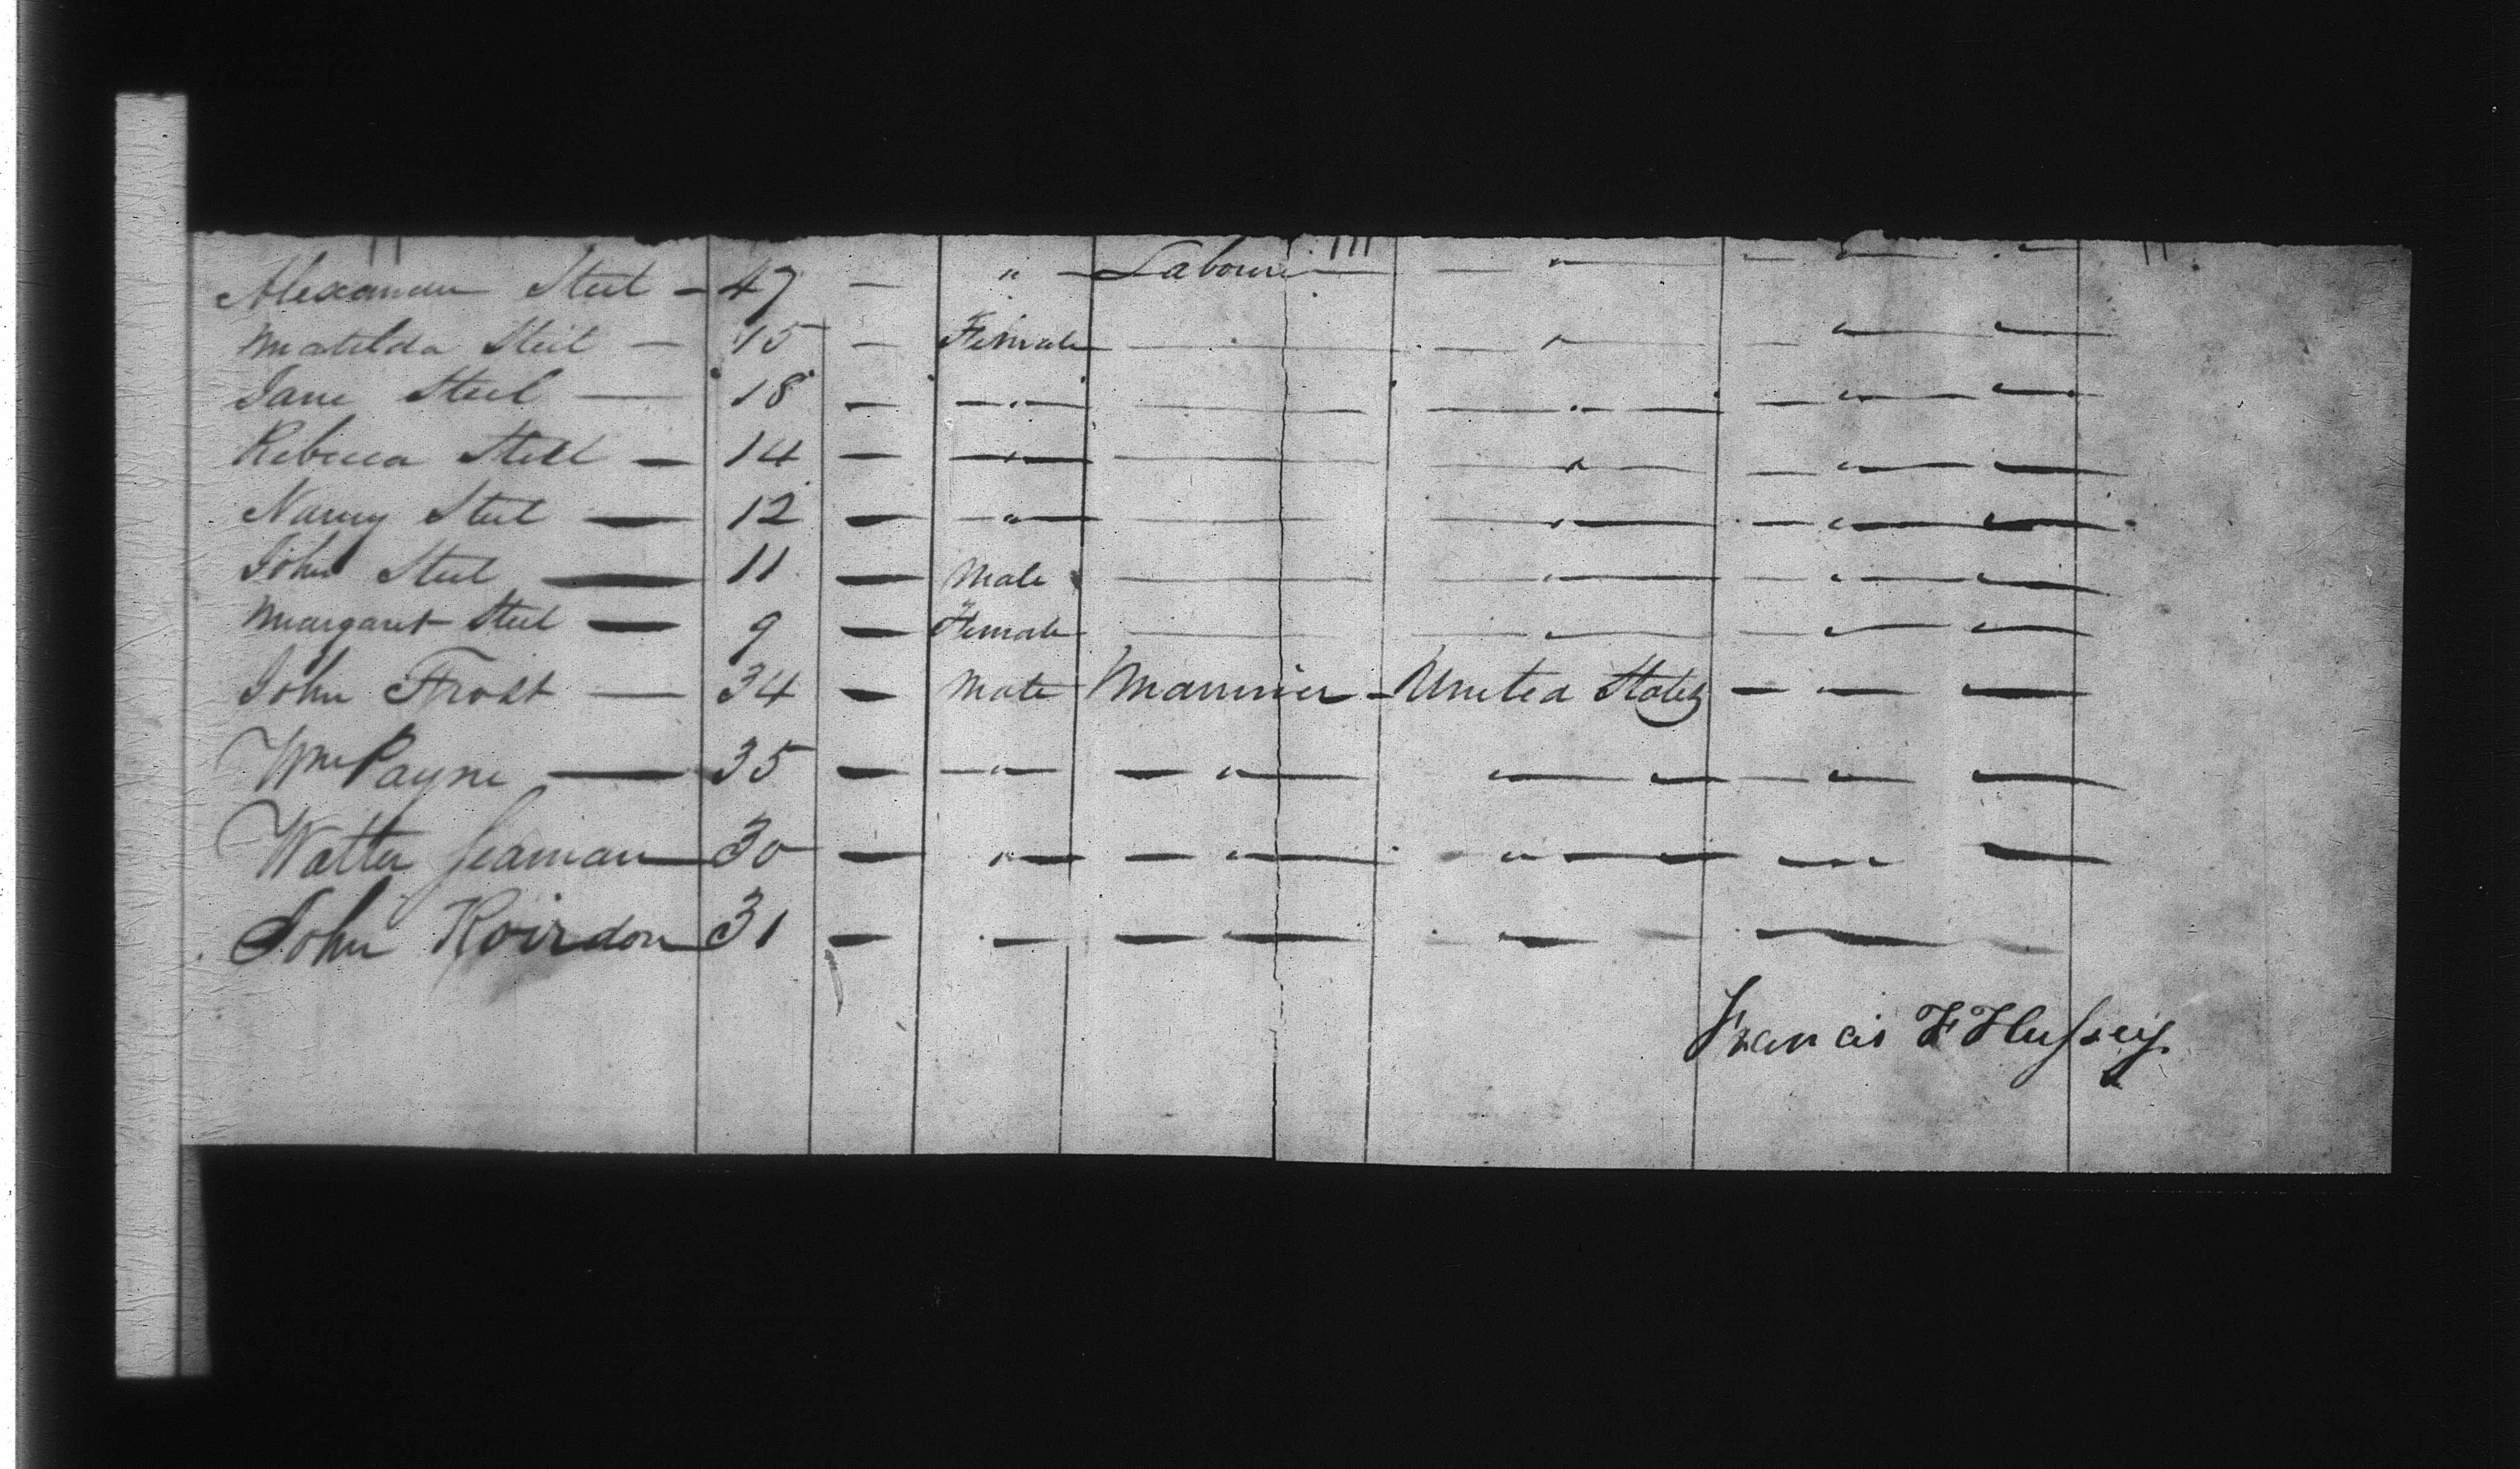 Alexander Steel — 47 — " — Labourer — — " — — —
Matilda Steel — 45 — Female — — " — — —
Jane Steel — 18 — — " — — — " — — — —
Rebecca Steel — 14 — — " — — — " — — — —
Nancy Steel — 12 — — " — — — " — — — —
John Steel — 11 — Male — — " — — — —
Margaret Steel — 9 — Female — — " — — — —
John Frost — 34 — Male Marinier — United States — — —
Wm Payne — 35 — — " — — " — — " — — — " — —
Walter Seaman — 30 — " — — " — — " — — — " —
John — 31 — — — — — — — —
Francis F Hussey